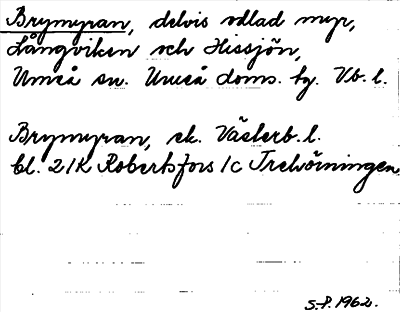 Brymyran, delvis odlad myr,
Långviken och Hissjön,
Umeå sn. Umeå doms. tg. Vb. l.
Brymyran, ek. Västerb. l.
bl. 21K Robertsfors 1c Trelvörningen
S.P. 1962.